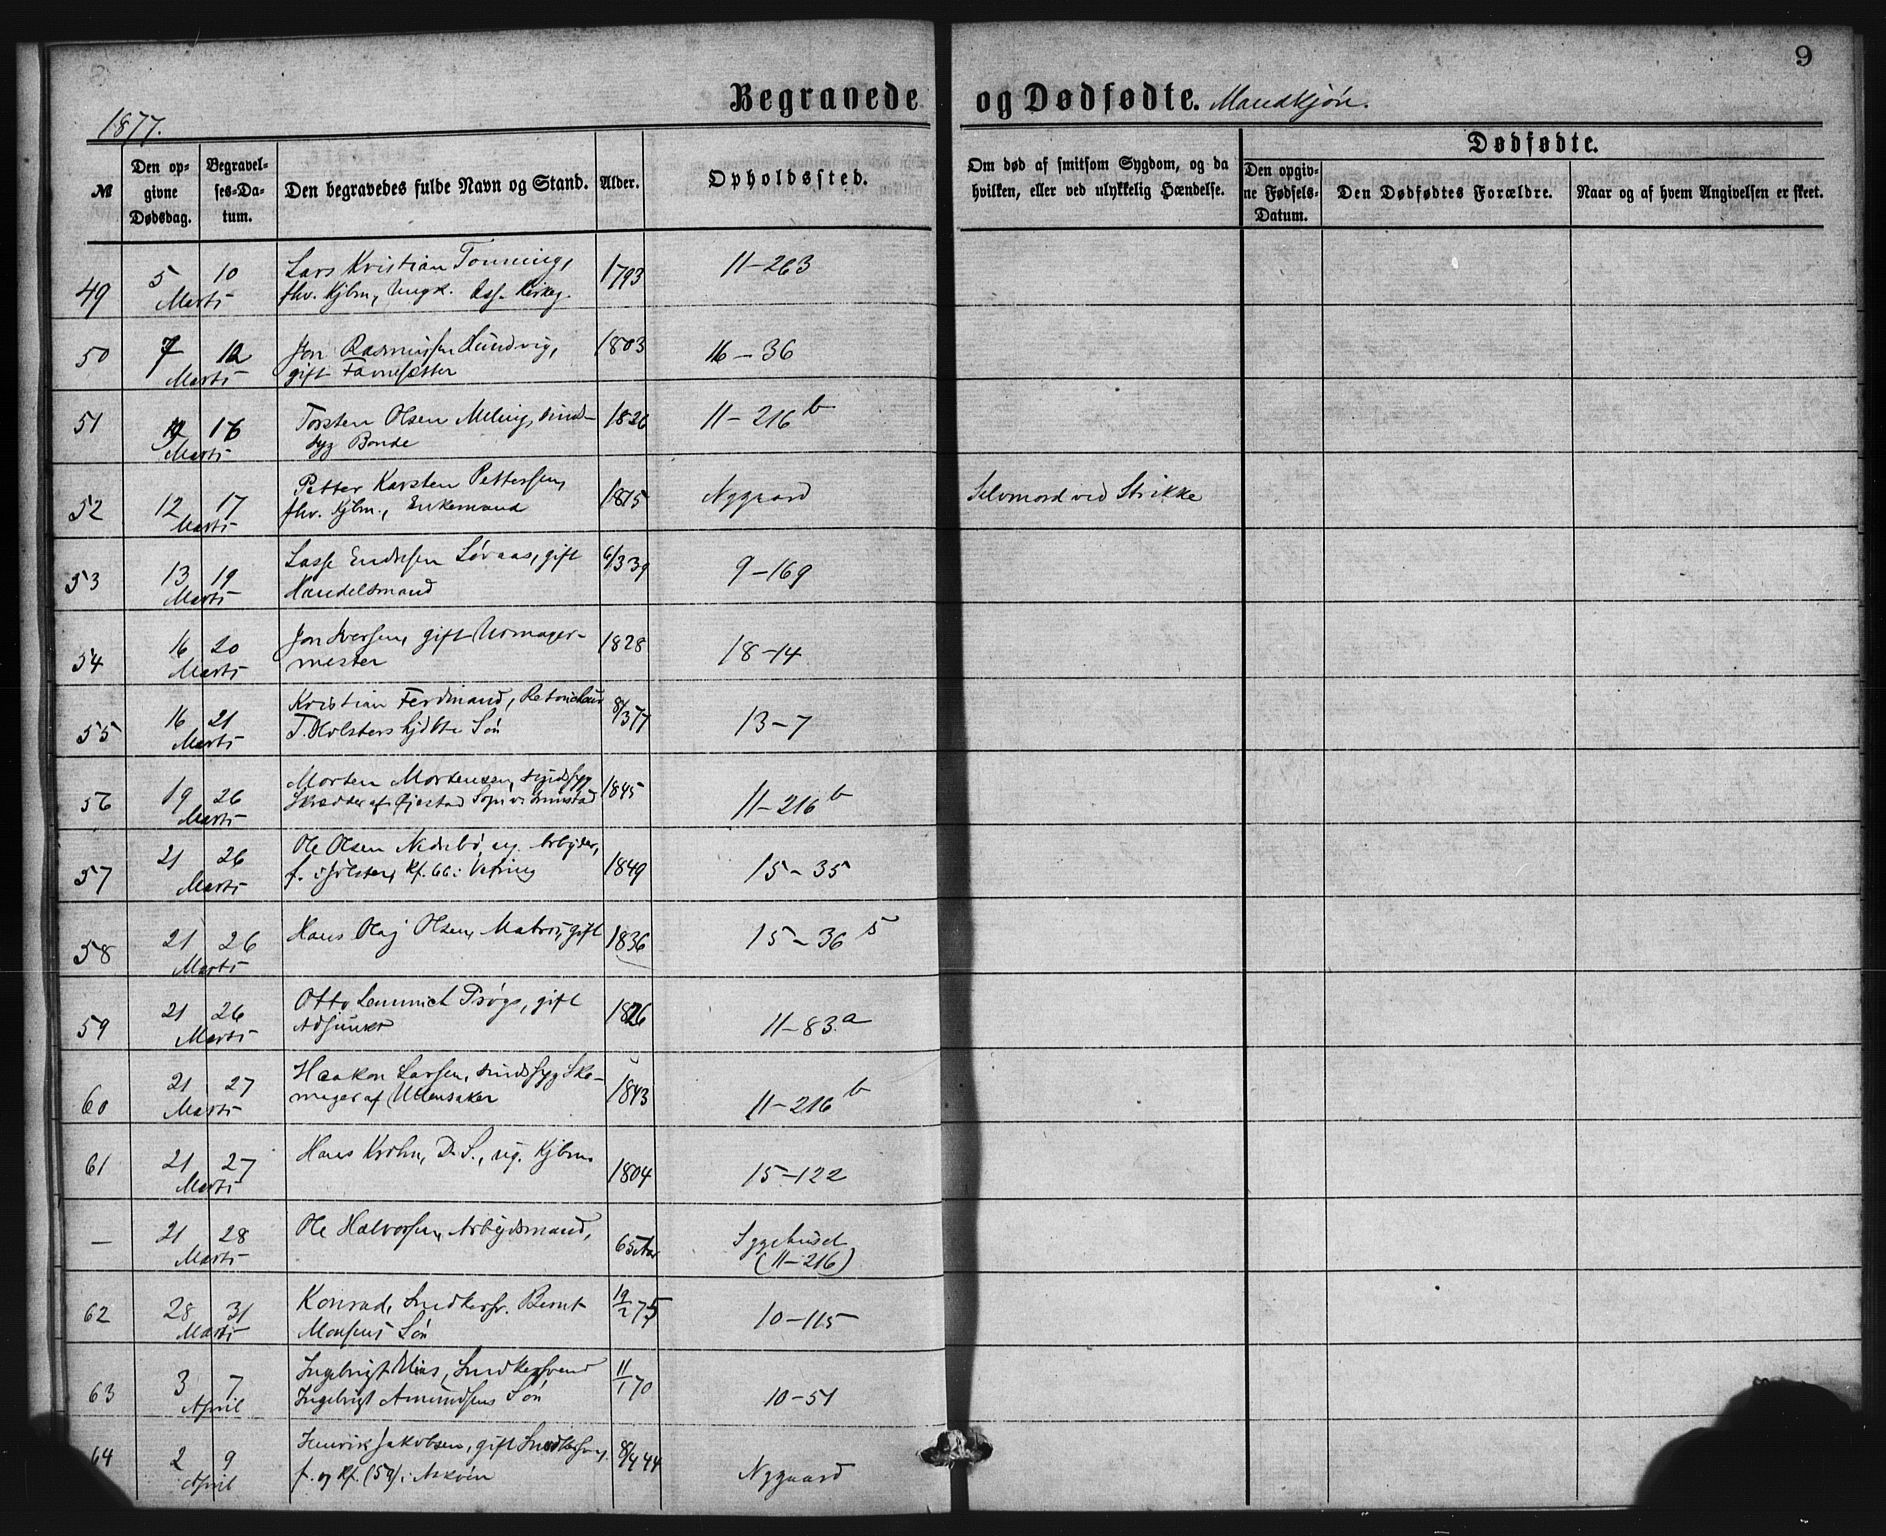 9
Begravede og Dødfødte. Mandkjøn.
1877.
№
Den opgivne Dødsdag.
Begravelses-Datum.
Den begravedes fulde Navn og Stand.
Alder.
Opholdssted.
Om død af smitsom Sygdom, og da hvilken, eller ved ulykkelig Hændelse.
Dødfødte.
Den opgivne Fødsels-Datum.
Den Dødfødtes Forældre.
Naar og af hvem Angivelsen er skeet.
49 5 10 Marts Lars Kristian Tonning, 1793 11-263
fhv. Kjbm, Ungk.
50 7 12 Marts Jon Rasmussen Sundvig, 1803 16-36
gift
51 16 Marts Torsten Olsen Meling, sind- 1826 11-216b
syg Bonde
52 12 17 Marts Petter Karsten Pettersen, 1815 Nygaard Selvmord ved Strikke
fhv. Kjbm., Enkemand
53 13 19 Marts Lasse Endresen Søraas, gift 6/3 39 9-169
Handelsmand
54 16 20 Marts Jon Iversen, gift Urmager- 1828 18-14
mester
55 16 21 Marts Kristian Ferdinand, 8/3 77 13-7
T. Holsters Søn
56 19 26 Marts Morten Mortensen, sindssyg 1845 11-216b
Skrædder af Øiestad
57 21 26 Marts Ole Olsen Nedrebø, ug. Arbeider, 1849 15-35
f. i Jølster, Kf. 66 i
58 21 26 Marts Hans Olaj Olsen, Matros, gift 1836 15-36 5
59 21 26 Marts Otto Lemmich gift 1826 11-83.a
Adjunkt
60 21 27 Marts Haakon Larsen, sindssyg Sko- 1843 11-216b
mager af Ullensaker
61 21 27 Marts Hans Krohn, D. S., ug. Kjbm. 1804 15-122
— 21 28 Marts Ole Halvorsen, Arbejdsmand, 65 Aar Sygehuset
(11-216)
62 28 31 Marts Konrad, Snedkersv. Bernt 19/2 75 10-115
Monsens Søn
63 3 7 April Ingebrigt Snedkersvend 11/1 70 10-51
Ingebrigt Amundsens Søn
64 2 9 April Henrik Jakobsen, gift Snedkersv. 8/4 44 Nygaard
f. og Kf. (59) i Askøen